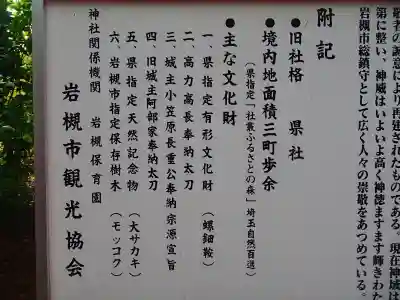 敬者の誠意により再建されたものである。現在神域は
第に整い、神威はいよいよ高く神徳ますます輝きわた
岩槻市総鎮守として広く人々の崇敬をあつめている。
附記
●旧社格 県社
●境内地面積三町歩余
（県指定「社叢ふるさとの森」埼玉自然百選）
●主な文化財
一、県指定有形文化財（螺鈿鞍）
二、高力高長奉納太刀
三、城主小笠原長重公奉納宗源宣旨
四、旧城主阿部家奉納太刀
五、県指定天然記念物（大サカキ）
六、岩槻市指定保存樹木（モッコク）
神社関係機関 岩槻保育園
岩槻市観光協会